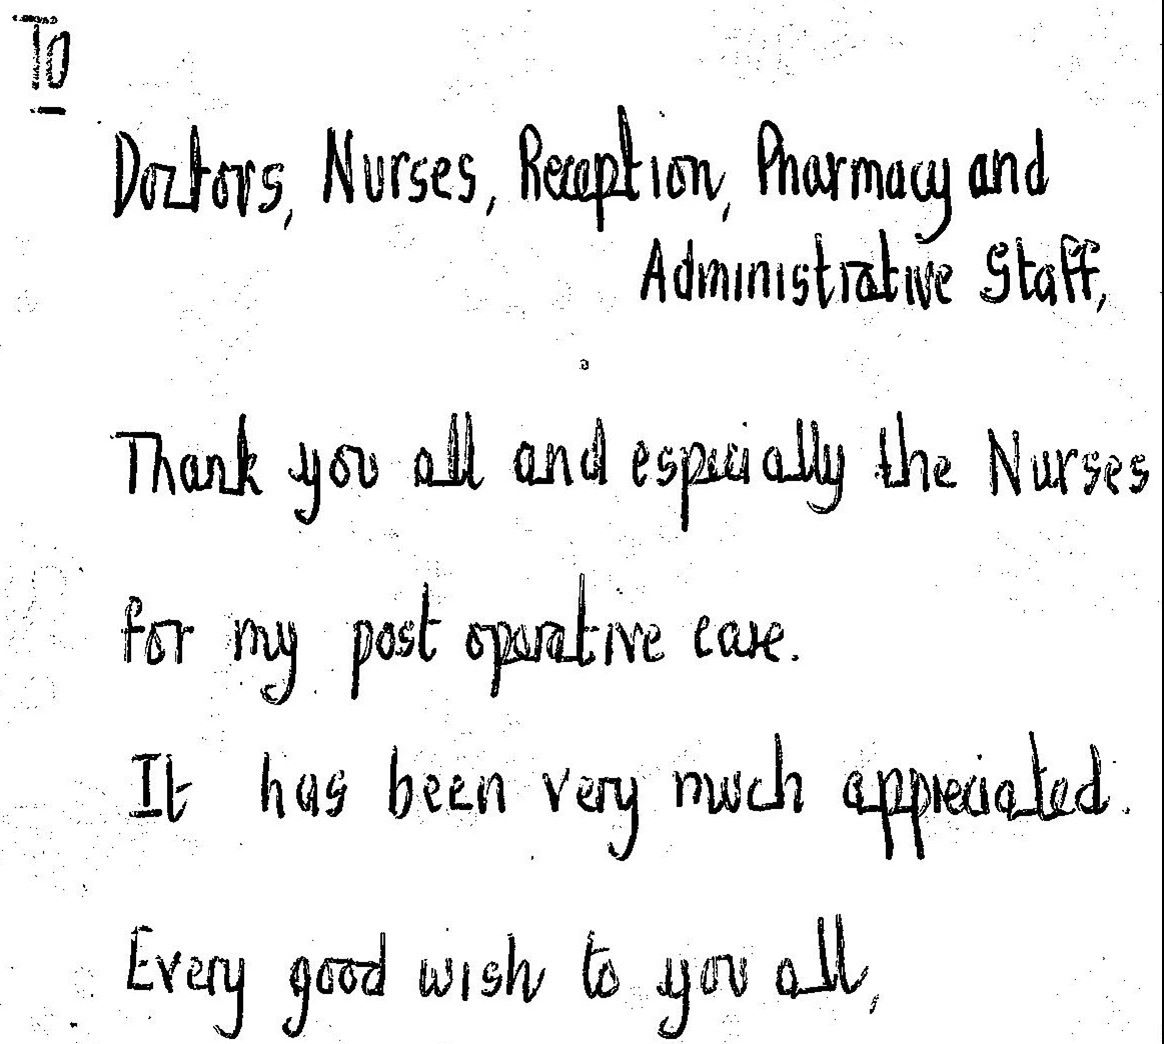 To
Doctors, Nurses, Reception, Pharmacy and
Administrative Staff,
Thank you all and especially the Nurses
for my post operative care.
It has been very much appreciated.
Every good wish to you all,